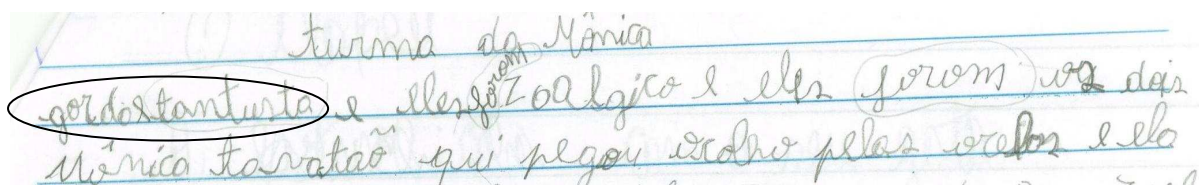 turma da Mônica
gordostantusta e eles forom Zoalgico e eles forom os dois
Mônica tavatão qui pegou pelas e ela